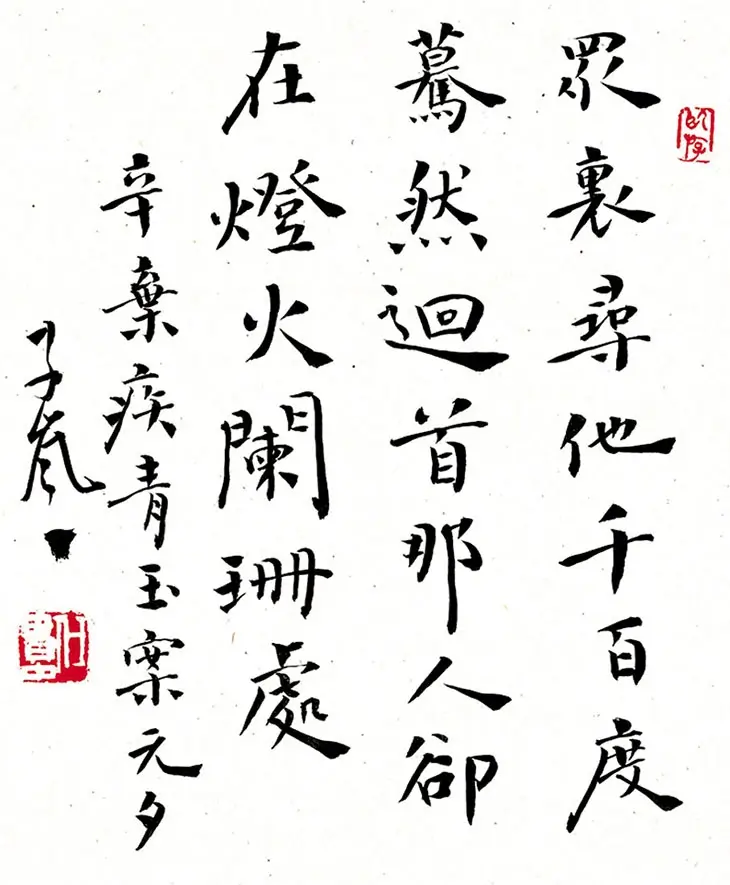 眾裏尋他千百度
驀然迴首那人卻
在燈火闌珊處
辛棄疾青玉案元夕
子嵐